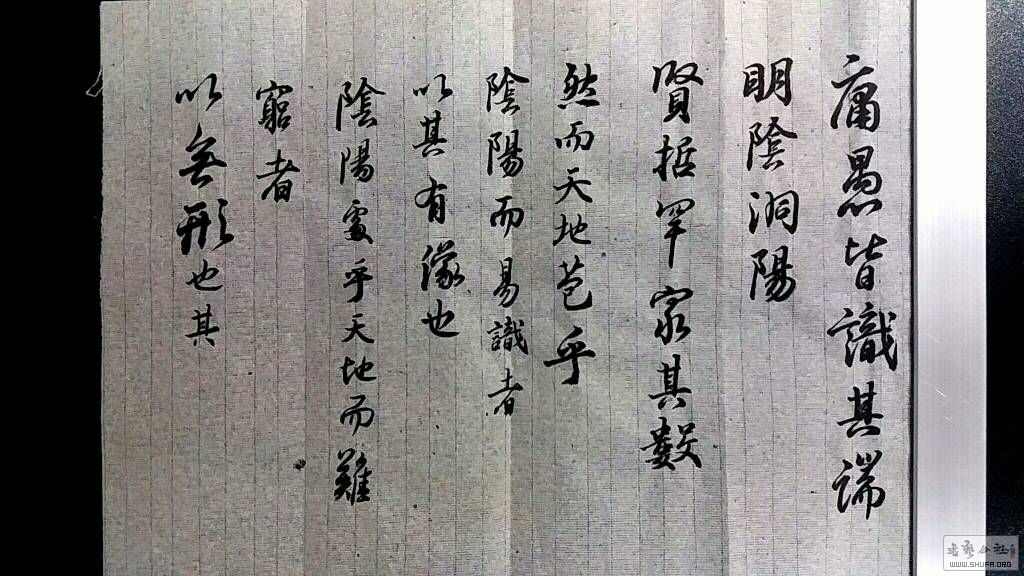 庸愚皆識其端
明陰洞陽
賢哲罕家其數
然而天地苞乎
陰陽而易識者
以其有像也
陰陽處乎天地而難
窮者
以無形也其
WWW.SHUFA.ORG